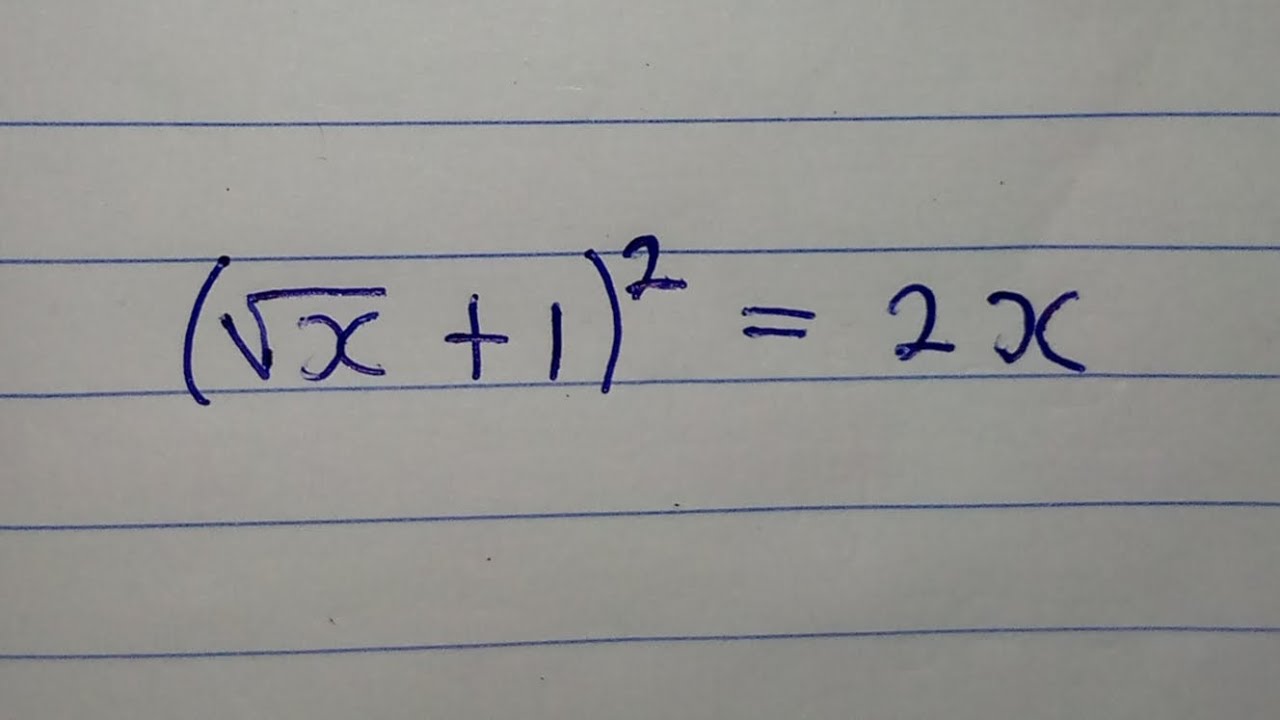 (√x + 1)² = 2x